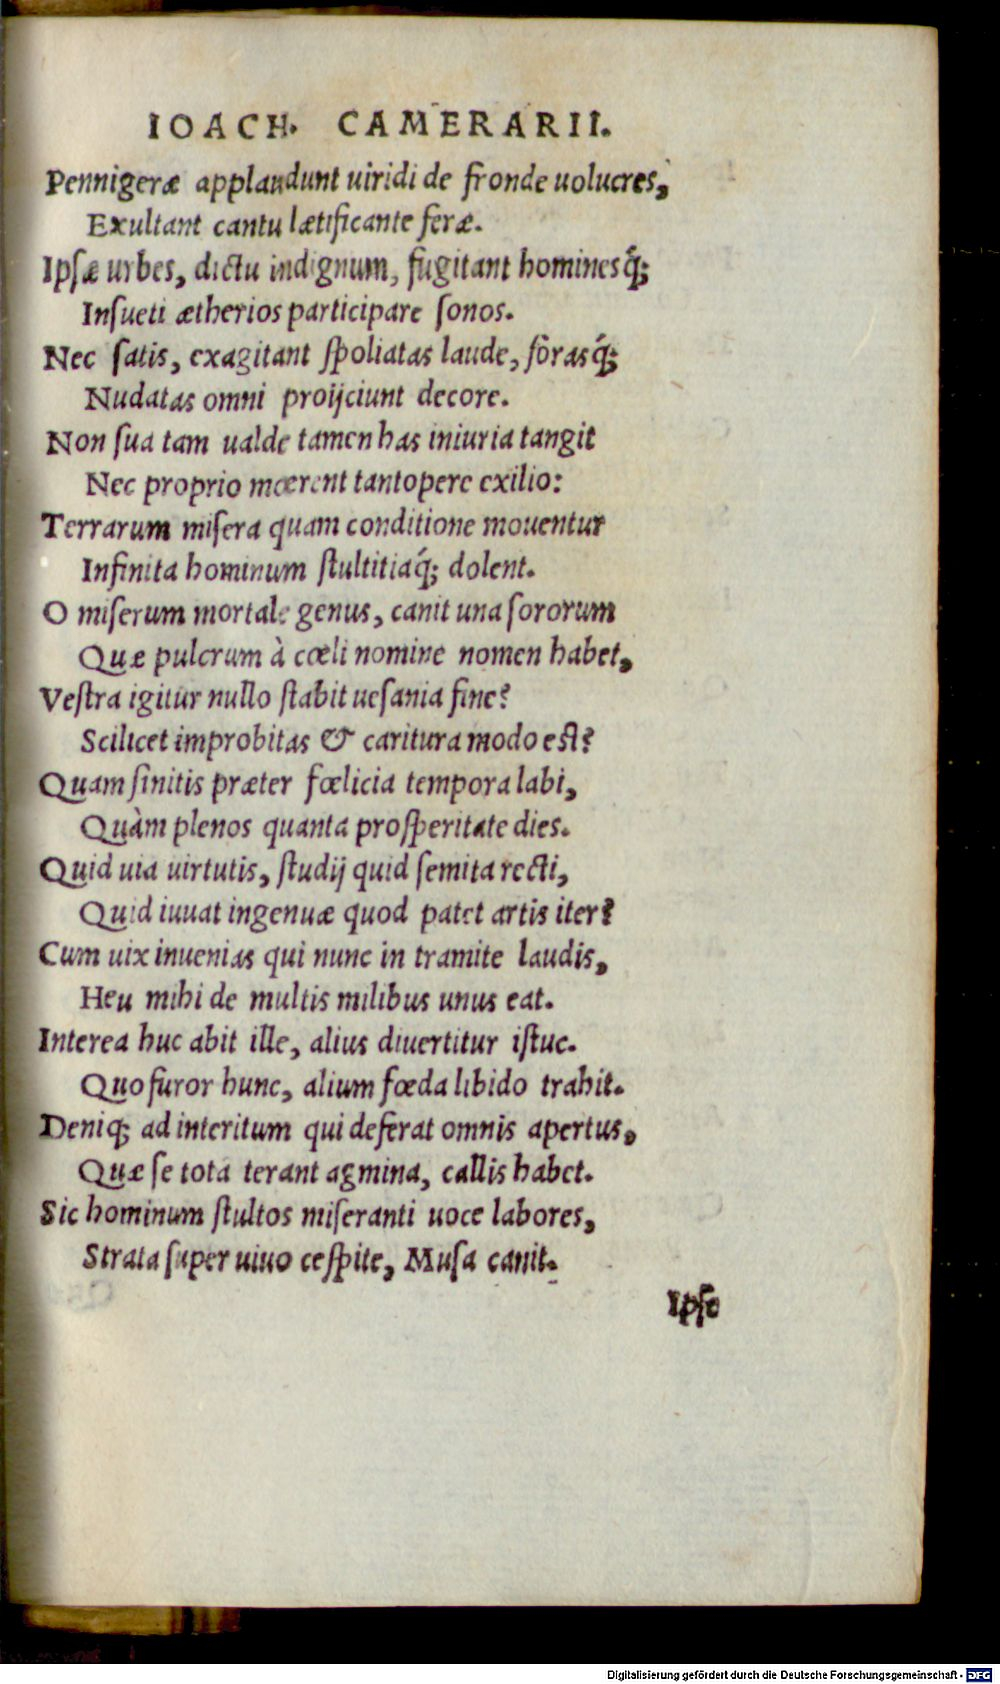 IOACH. CAMERARII.
Pennigeræ applaudunt uiridi de fronde uolucres,
Exultant cantu lætificante feræ.
Ipſæ urbes, dictu indignum, fugitant hominesq́;
Inſueti ætherios participare ſonos.
Nec ſatis, exagitant ſpoliatas laude, forasq́;
Nudatas omni proijciunt decore.
Non ſua tam ualde tamen has iniuria tangit
Nec proprio mœrent tantopere exilio:
Terrarum miſera quam conditione mouentur
Infinita hominum ſtultitiaq́; dolent.
O miſerum mortale genus, canit una ſororum
Quæ pulcrum à cœli nomine nomen habet,
Veſtra igitur nullo ſtabit ueſania fine?
Scilicet improbitas & caritura modo eſt?
Quam ſinitis præter fœlicia tempora labi,
Quàm plenos quanta proſperitate dies.
Quid uia uirtutis, ſtudij quid ſemita recti,
Quid iuuat ingenuæ quod patet artis iter?
Cum uix inuenias qui nunc in tramite laudis,
Heu mihi de multis milibus unus eat.
Interea huc abit ille, alius diuertitur iſtuc.
Quo furor hunc, alium fœda libido trahit.
Deniq; ad interitum qui deferat omnis apertus,
Quæ ſe tota terant agmina, callis habet.
Sic hominum ſtultos miſeranti uoce labores,
Strata ſuper uiuo ceſpite, Muſa canit.
Ipſe
Digitalisierung gefördert durch die Deutsche Forschungsgemeinschaft - DFG